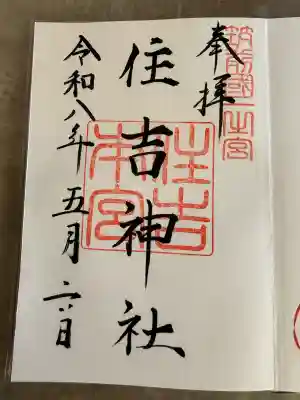 筑前國一之宮
奉拝
住吉神社
住吉本宮
令和八年五月六日